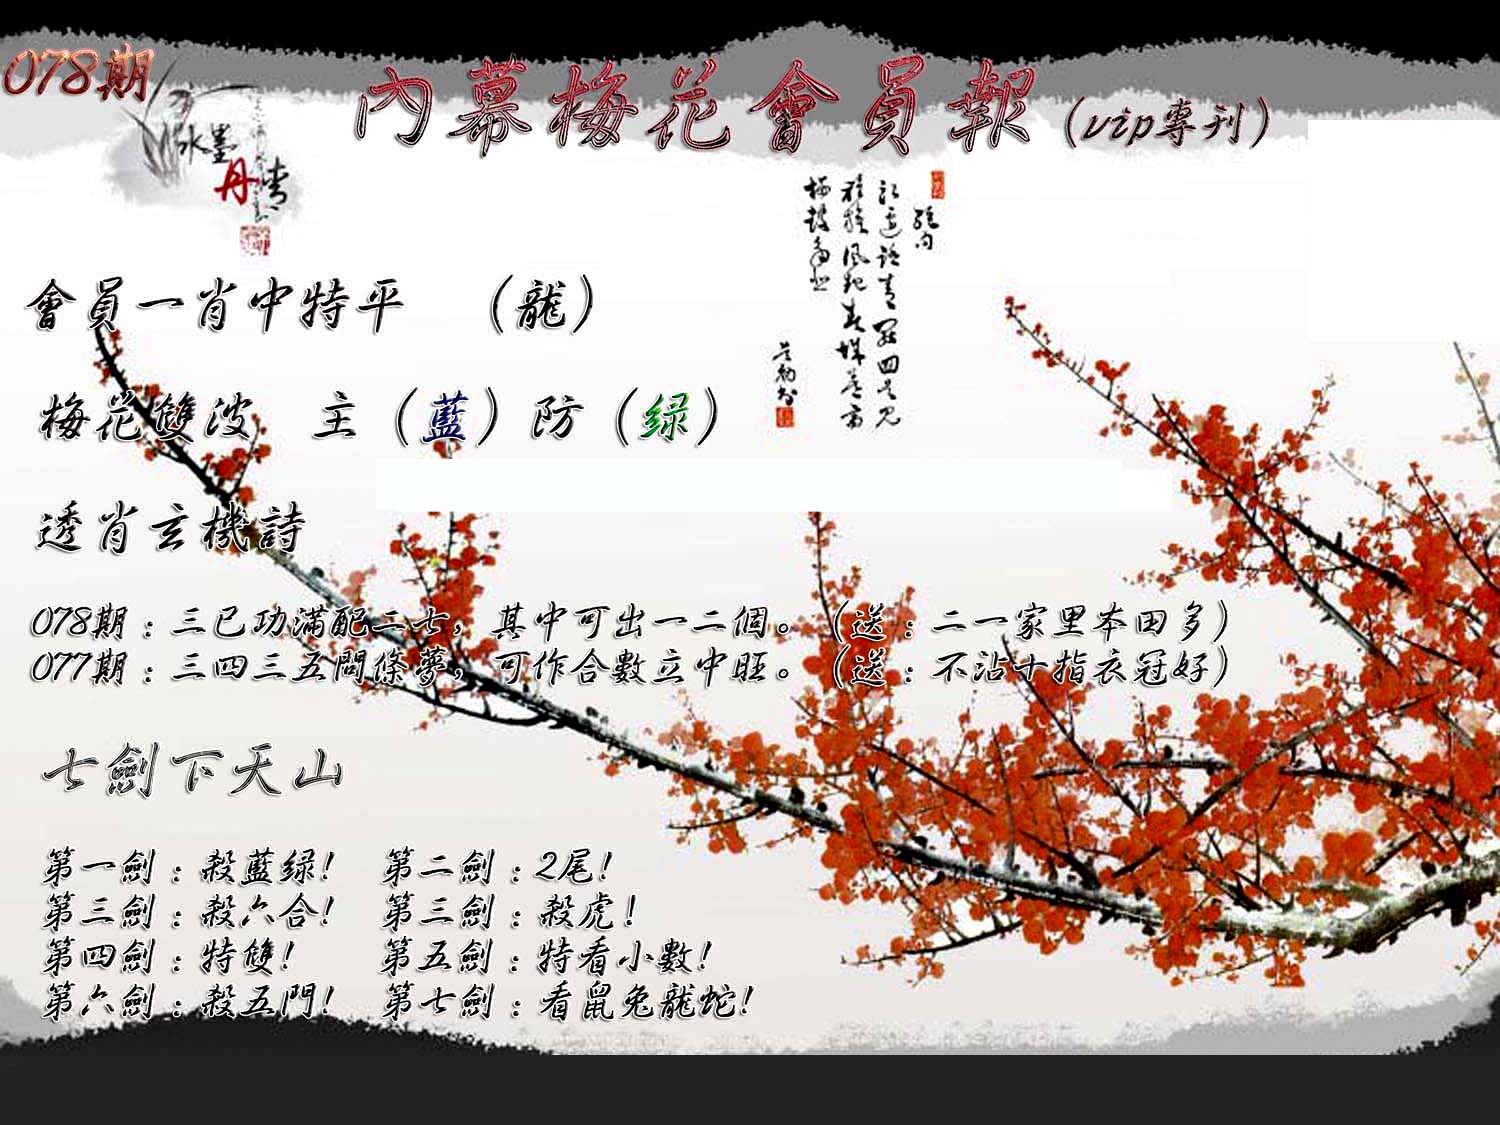 078期
內幕梅花會員報(vip專刊)
水墨
丹青
絕句
會員一肖中特平 (龍)
梅花雙波 主(藍)防(绿)
透肖玄機詩
078期:三已功滿配二七,其中可出一二個。(送:二一家里本田多)
077期:三四三五問條夢,可作合數立中旺。(送:不沾十指衣冠好)
七劍下天山
第一劍:殺藍绿! 第二劍:2尾!
第三劍:殺六合! 第三劍:殺虎!
第四劍:特雙! 第五劍:特看小數!
第六劍:殺五門! 第七劍:看鼠兔龍蛇!